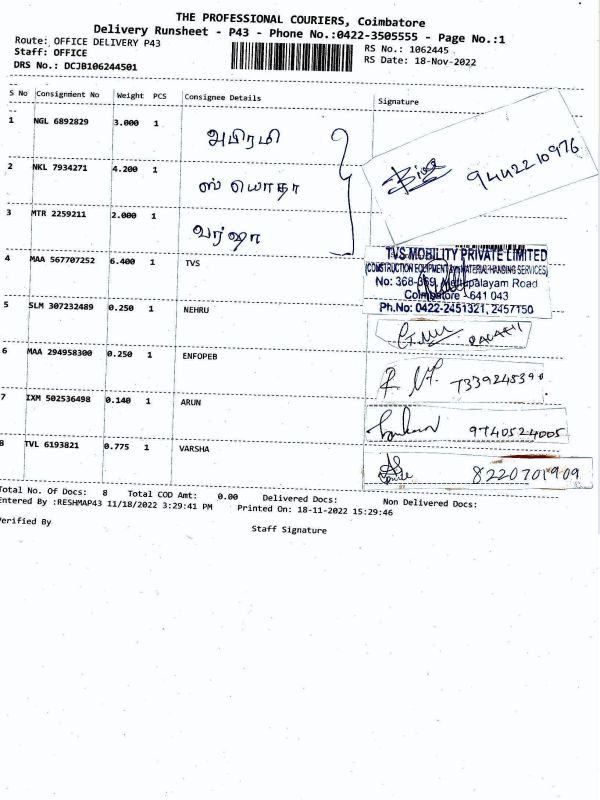 THE PROFESSIONAL COURIERS, Coimbatore
Delivery Runsheet - P43 - Phone No.:0422-3505555 - Page No.:1
Route: OFFICE DELIVERY P43
Staff: OFFICE
DRS No.: DCJB106244501
RS No.: 1062445
RS Date: 18-Nov-2022
S No Consignment No Weight PCS Consignee Details Signature
1 NGL 6892829 3.000 1 அபிரமி
9442210976
2 NKL 7934271 4.200 1
3 MTR 2259211 2.000 1 வர்ஷா
4 MAA 567707252 6.400 1 TVS
TVS MOBILITY PRIVATE LIMITED
(CONSTRUCTION EQUIPMENT MATERIAL HANDING SERVICES)
No: 368-369, Mettupalayam Road
Coimbatore - 641 043
Ph.No: 0422-2451321, 2457150
5 SLM 307232489 0.250 1 NEHRU
6 MAA 294958300 0.250 1 ENFOPEB
7 IXM 502536498 0.140 1 ARUN
9740524005
8 TVL 6193821 0.775 1 VARSHA
8220701909
Total No. Of Docs: 8 Total COD Amt: 0.00 Delivered Docs: Non Delivered Docs:
Entered By :RESHMAP43 11/18/2022 3:29:41 PM Printed On: 18-11-2022 15:29:46
Verified By
Staff Signature